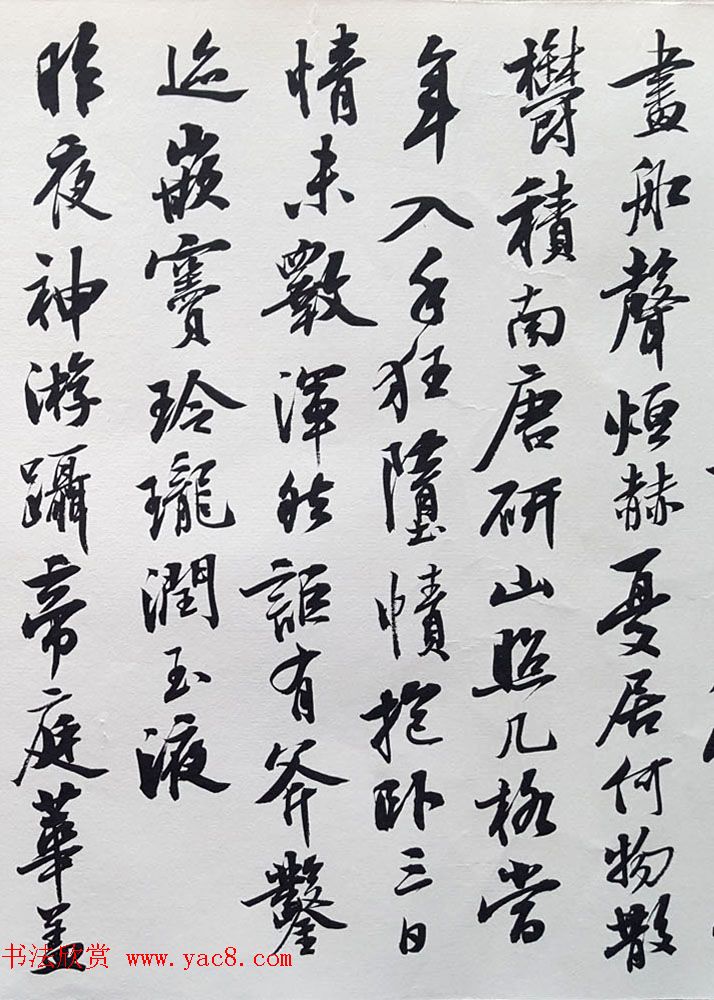 畫船聲烜赫憂居何物散
欝積南唐研山照几格當
年入手狂墮幘抱卧三日
情未斁渾然詎有斧鑿
迹嵌竇玲瓏潤玉液
昨夜神游躡帝庭華蓋
书法欣赏 www.yac8.com